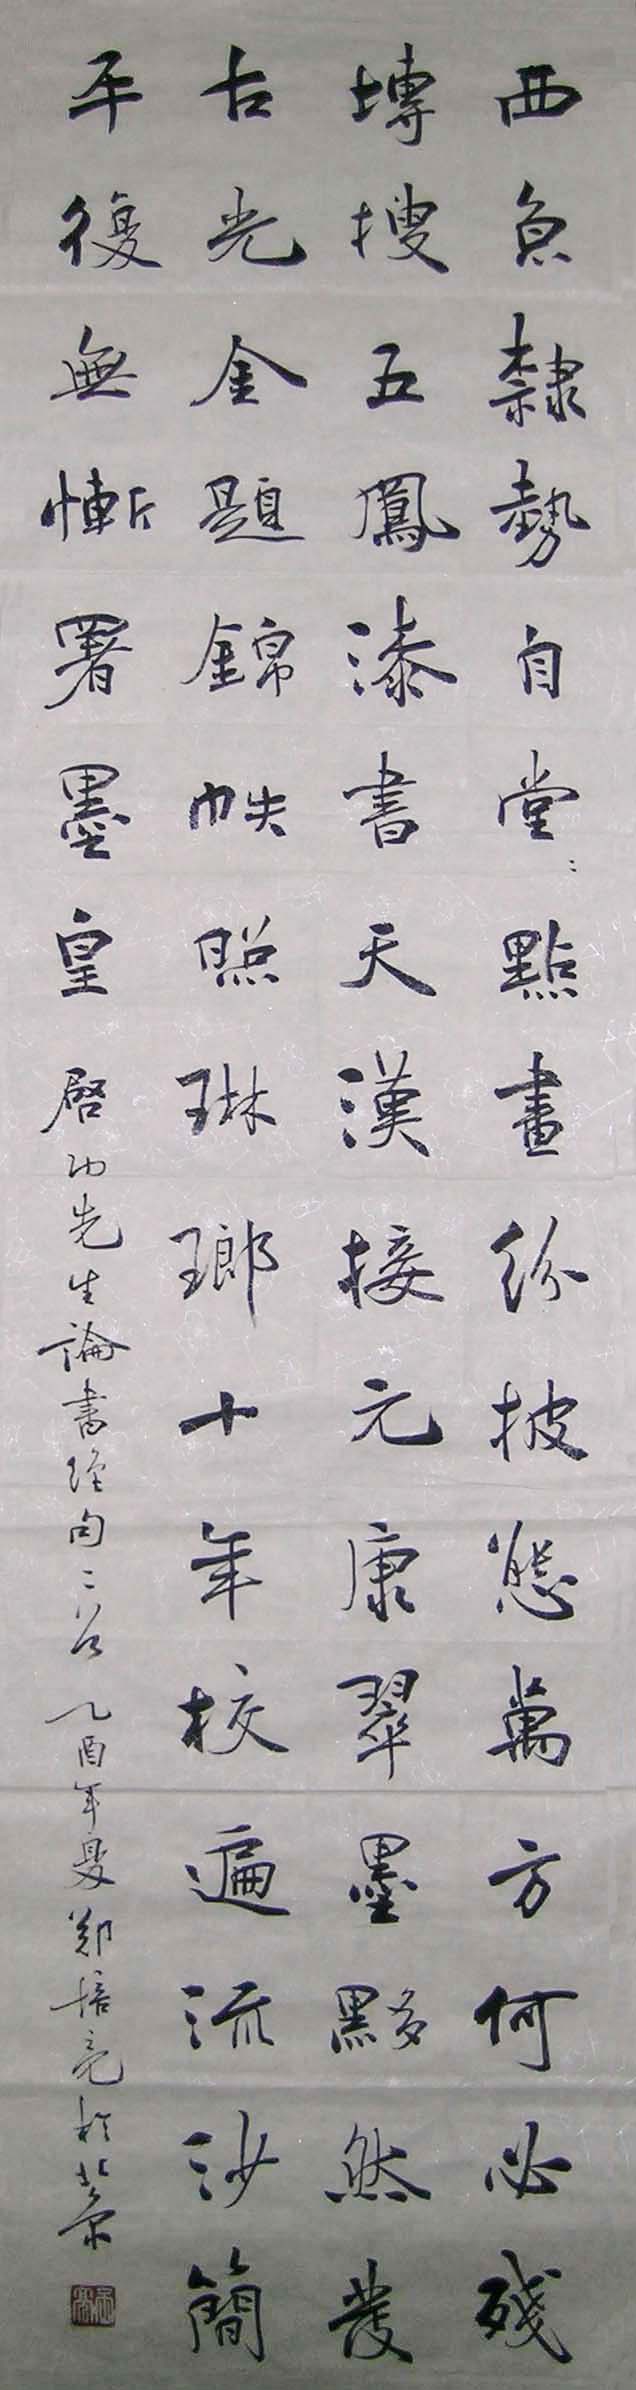 西京隸勢自堂〻點畫紛披態萬方何必殘
塼搜五鳳漆書天漢接元康翠墨黟然發
古光金題錦帙照琳瑯十年校遍流沙簡
平復無慚署墨皇 啓功先生論書絕句二首 乙酉年夏鄭培亮於北京